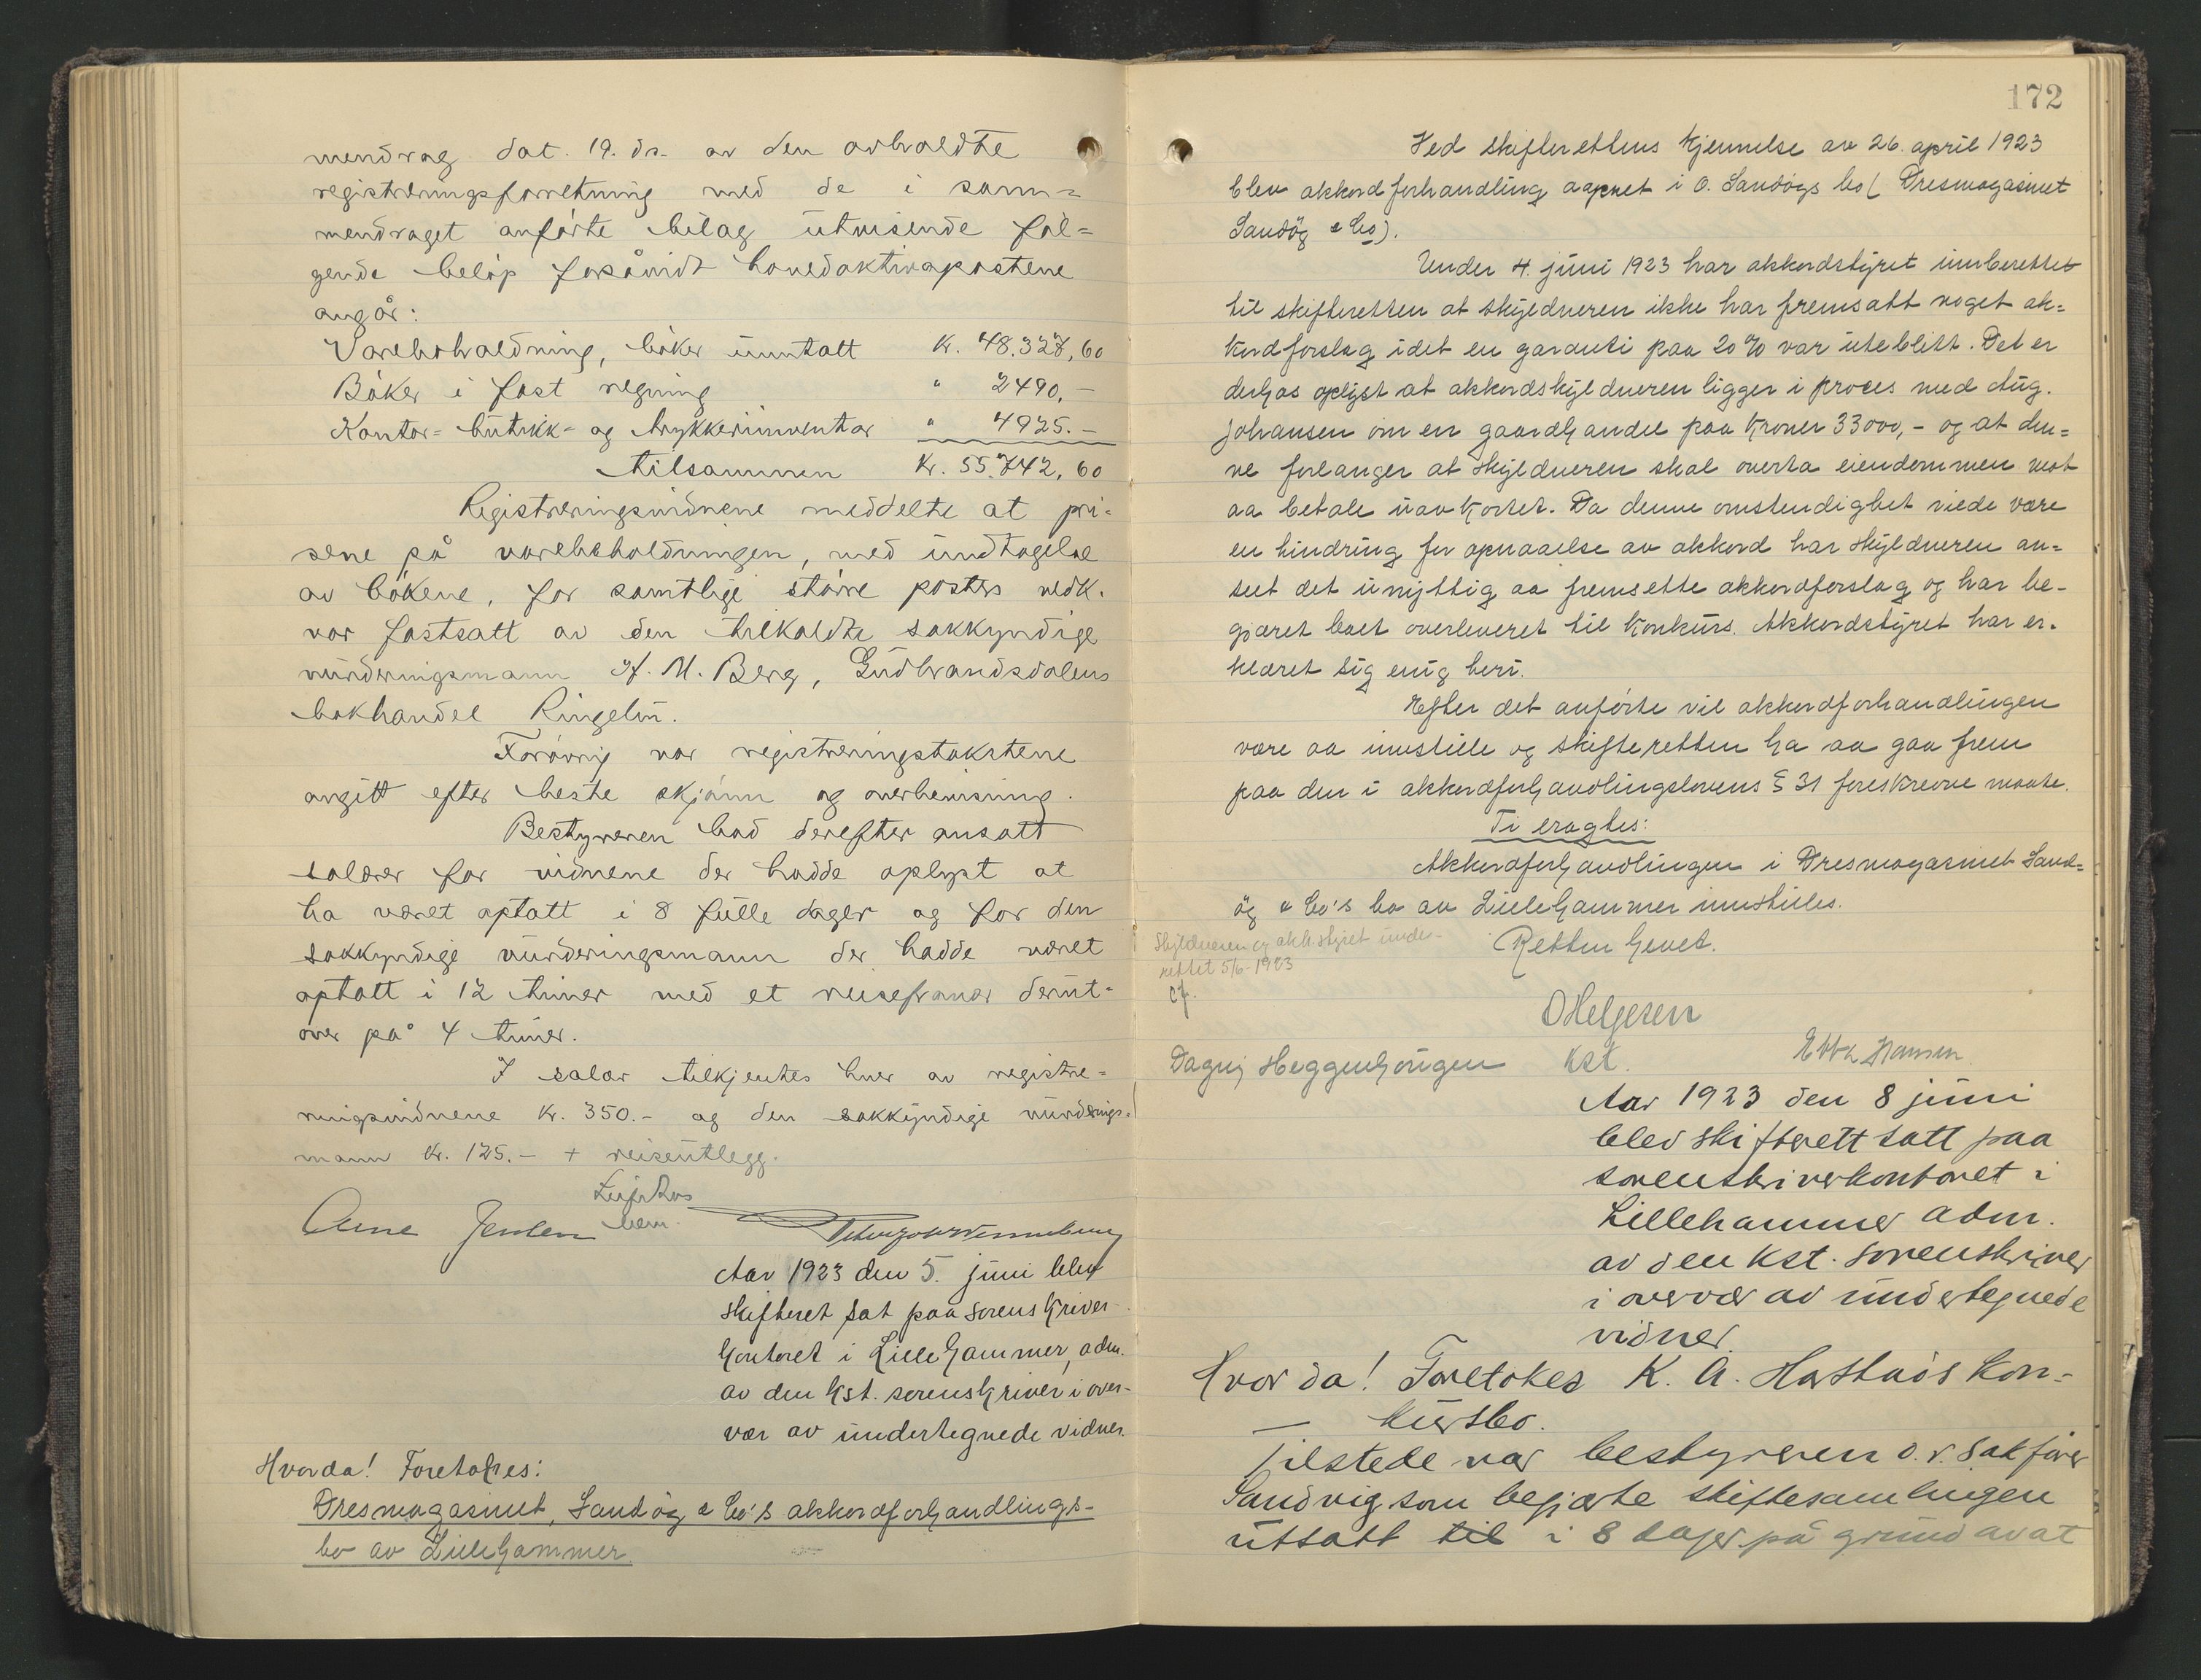 mendrag dat. 19. ds. av den avholdte
registreringsforretning med de i sam=
mendraget anførte bilag utvisende føl=
gende beløp forsåvidt hovedaktivapostene
angår:
Varebeholdning, bøker unntatt kr. 48.327,60
Bøker i fast regning " 2490,-
Kontor- butikk- og trykkeriinventar " 4925.-
tilsammen kr. 55.742,60
Registreringsvidnene meddelte at pri-
sene på varebeholdningen, med undtagelse
av bøkene, for samtlige større posters vedk.
var fastsatt av den tilkaldte sakkyndige
vurderingsmann H. M. Berg, Gudbrandsdalens
bokhandel Ringebu.
Forøvrig var registreringstakstene
angitt efter beste skjønn og overbevisning.
Bestyreren bad derefter ansatt
salærer for vidnene der hadde oplyst at
ha været optatt i 8 fulle dager og for den
sakkyndige vurderingsmann der hadde været
optatt i 12 timer med et reisefravær derut-
over på 4 timer.
I salær tilkjentes hver av registre=
ringsvidnene kr. 350.- og den sakkyndige vurderings-
mann kr. 125.- + reiseutlegg.
Arne Jensen
Aar 1923 den 5. juni blev
skifteret sat paa sorenskriver-
kontoret i Lillehammer, adm.
av den kst. sorenskriver i over-
vær av undertegnede vidner.
Hvorda! Foretokes:
Dresmagasinet, Sandøg & Co's akkordforhandlings-
bo av Lillehammer
172
Ved skifterettens kjennelse av 26. april 1923
blev akkordforhandling aapnet i O. Sandøgs bo (Dresmagasinet
Sandøg & Co).
Under 4. juni 1923 har akkordstyret innberettet
til skifteretten at skyldneren ikke har fremsatt noget ak=
kordforslag idet en garanti paa 20% var uteblitt. Det er
derhos oplyst at akkordskyldneren ligger i proces med Aug.
Johansen om en gaardhandel paa kroner 33000,- og at den=
ne forlanger at skyldneren skal overta eiendommen mot
aa betale uavkortet. Da denne omstendighet vilde være
en hindring for opnaaelse av akkord har skyldneren an=
seet det unyttig aa fremsette akkordforslag og har be-
gjæret boet overleveret til konkurs. Akkordstyret har er-
klæret sig enig heri.
Efter det anførte vil akkordforhandlingen
være aa innstille og skifteretten ha aa gaa frem
paa den i akkordforhandlingslovens § 31 foreskrevne maate.
Ti eragtes:
Akkordforhandlingen i Dresmagasinet Sand=
øg & Co's bo av Lillehammer innstilles.
Skyldneren og akk.styret under-
rettet 5/6-1923
Retten hevet.
OHelgesen
kst.
Dagny Heggenhougen
Ebba Hansen
Aar 1923 den 8 juni
blev skifterett satt paa
sorenskriverkontoret i
Lillehammer adm.
av den kst. sorenskriver
i overvær av undertegnede
vidner.
Hvorda! Foretokes K. A. Hastads kon-
kursbo.
Tilstede var bestyreren o.r.sakfører
Sandvig som begjærte skiftesamlingen
utsatt til i 8 dager på grund av at